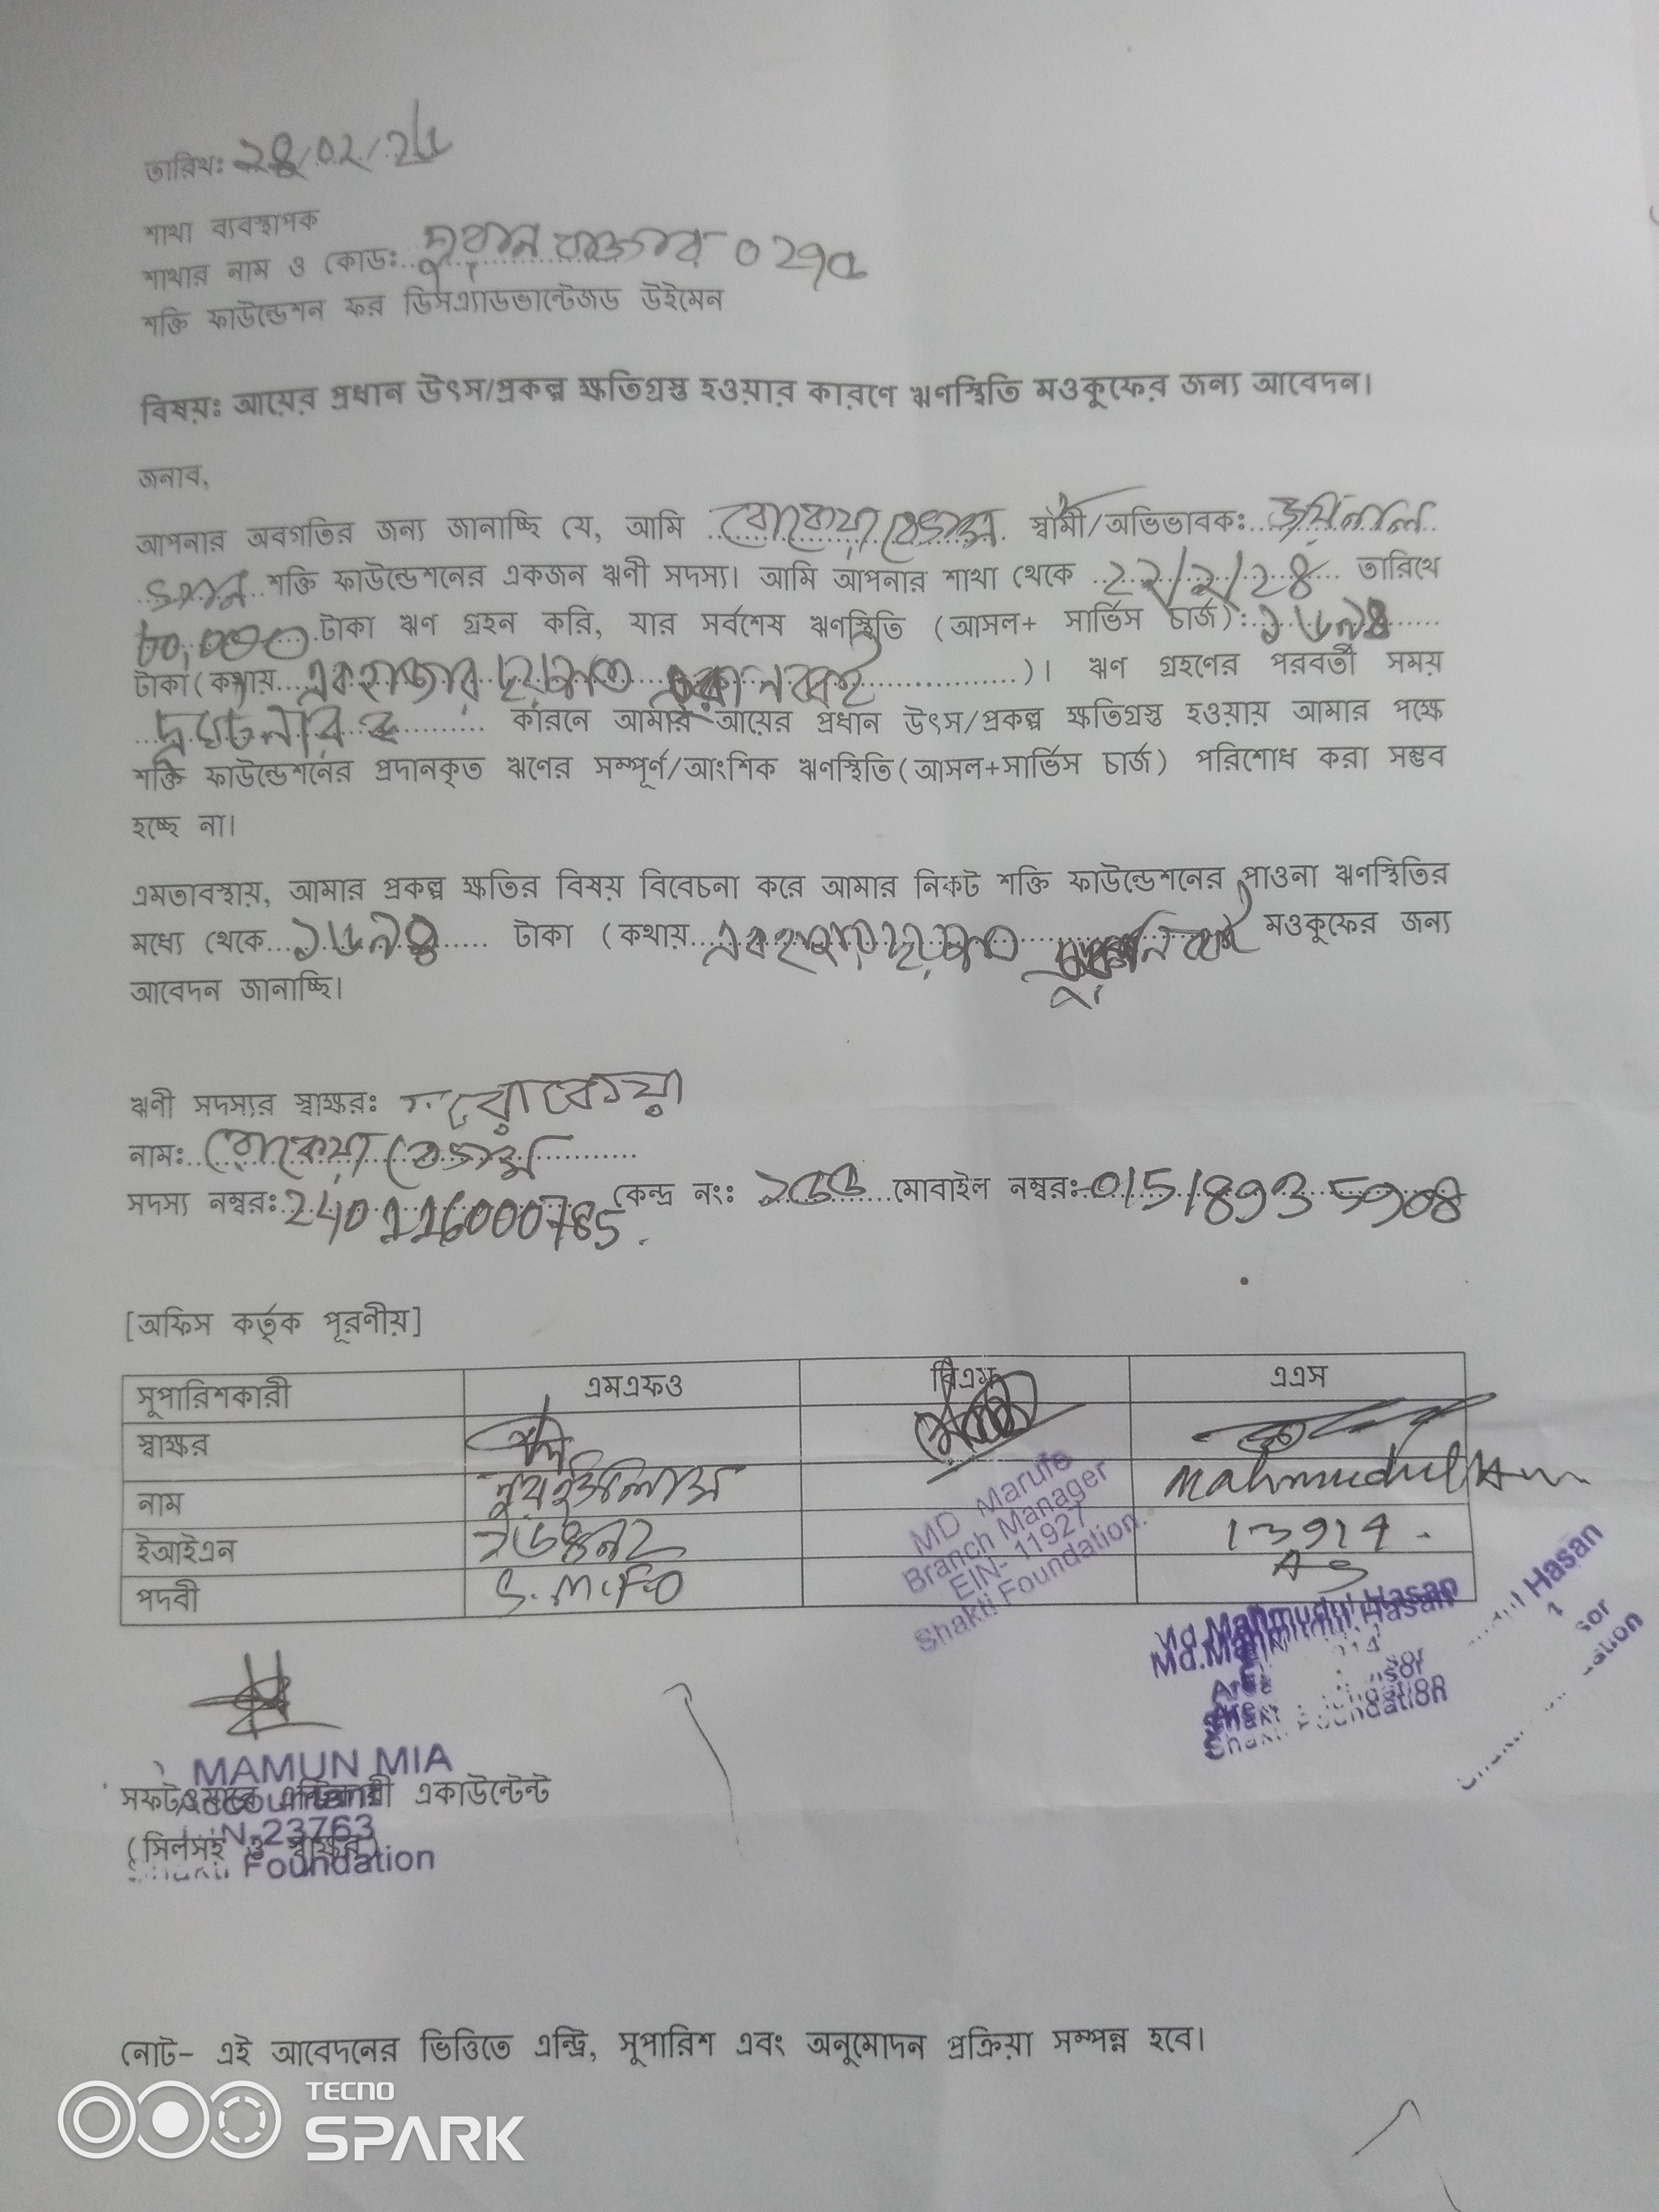 তারিখঃ ২৪/০২/২৫
শাখা ব্যবস্থাপক
শাখার নাম ও কোডঃ... বাজার 0296
শক্তি ফাউন্ডেশন ফর ডিসএ্যাডভান্টেজড উইমেন
বিষয়ঃ আয়ের প্রধান উৎস/প্রকল্প ক্ষতিগ্রস্ত হওয়ার কারণে ঋণস্থিতি মওকুফের জন্য আবেদন।
জনাব,
আপনার অবগতির জন্য জানাচ্ছি যে, আমি রোকেয়া বেগম স্বামী/অভিভাবকঃ
শক্তি ফাউন্ডেশনের একজন ঋণী সদস্য। আমি আপনার শাখা থেকে ২২/২/২৪ তারিখে
৮০,০০০ টাকা ঋণ গ্রহন করি, যার সর্বশেষ ঋণস্থিতি (আসল+ সার্ভিস চার্জ):
টাকা(কথায় একহাজার ছয়শত )। ঋণ গ্রহণের পরবর্তী সময়
কারনে আমার আয়ের প্রধান উৎস/প্রকল্প ক্ষতিগ্রস্ত হওয়ায় আমার পক্ষে
শক্তি ফাউন্ডেশনের প্রদানকৃত ঋণের সম্পূর্ণ/আংশিক ঋণস্থিতি(আসল+সার্ভিস চার্জ) পরিশোধ করা সম্ভব
হচ্ছে না।
এমতাবস্থায়, আমার প্রকল্প ক্ষতির বিষয় বিবেচনা করে আমার নিকট শক্তি ফাউন্ডেশনের পাওনা ঋণস্থিতির
মধ্যে থেকে ১৬৯৪ টাকা (কথায় একহাজার ছয়শত মওকুফের জন্য
আবেদন জানাচ্ছি।
ঋণী সদস্যর স্বাক্ষরঃ রোকেয়া
নামঃ রোকেয়া বেগম
সদস্য নম্বরঃ 240116000785. কেন্দ্র নংঃ ১৫৫ মোবাইল নম্বরঃ 01518935908
[অফিস কর্তৃক পূরণীয়]
সুপারিশকারী এমএফও বিএম এএস
স্বাক্ষর
নাম Mahmudul
ইআইএন 13914.
পদবী S. MFO AS
MD. Marufe
Branch Manager
EIN- 11927
Shakti Foundation.
Md.Mahmudul Hasan
Shakti Foundation
MAMUN MIA
Accountant
সফটওয়ারে এন্ট্রিকারী একাউন্টেন্ট
N-23763
(সিলসহ ও স্বাক্ষর)
Foundation
নোট- এই আবেদনের ভিত্তিতে এন্ট্রি, সুপারিশ এবং অনুমোদন প্রক্রিয়া সম্পন্ন হবে।
TECNO
SPARK